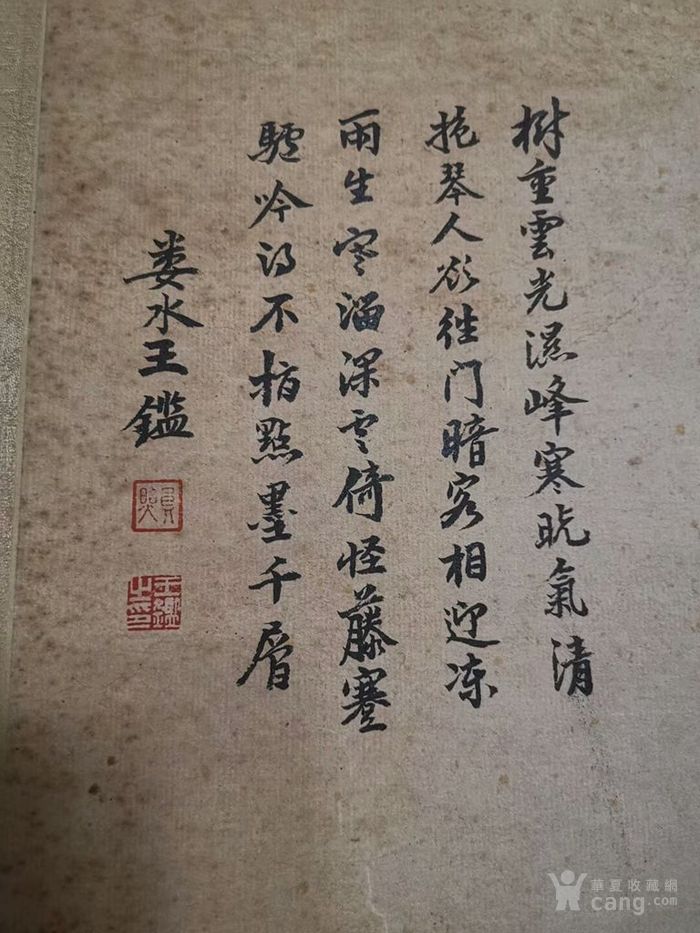 樹重雲光濕峰寒晚氣清
抱琴人欲往门暗客相迎冻
雨生寒溜深雲倚怪藤蹇
驢吟得不指點墨千層
婁水王鑑
王鑑之印
華夏收藏網
cang.com